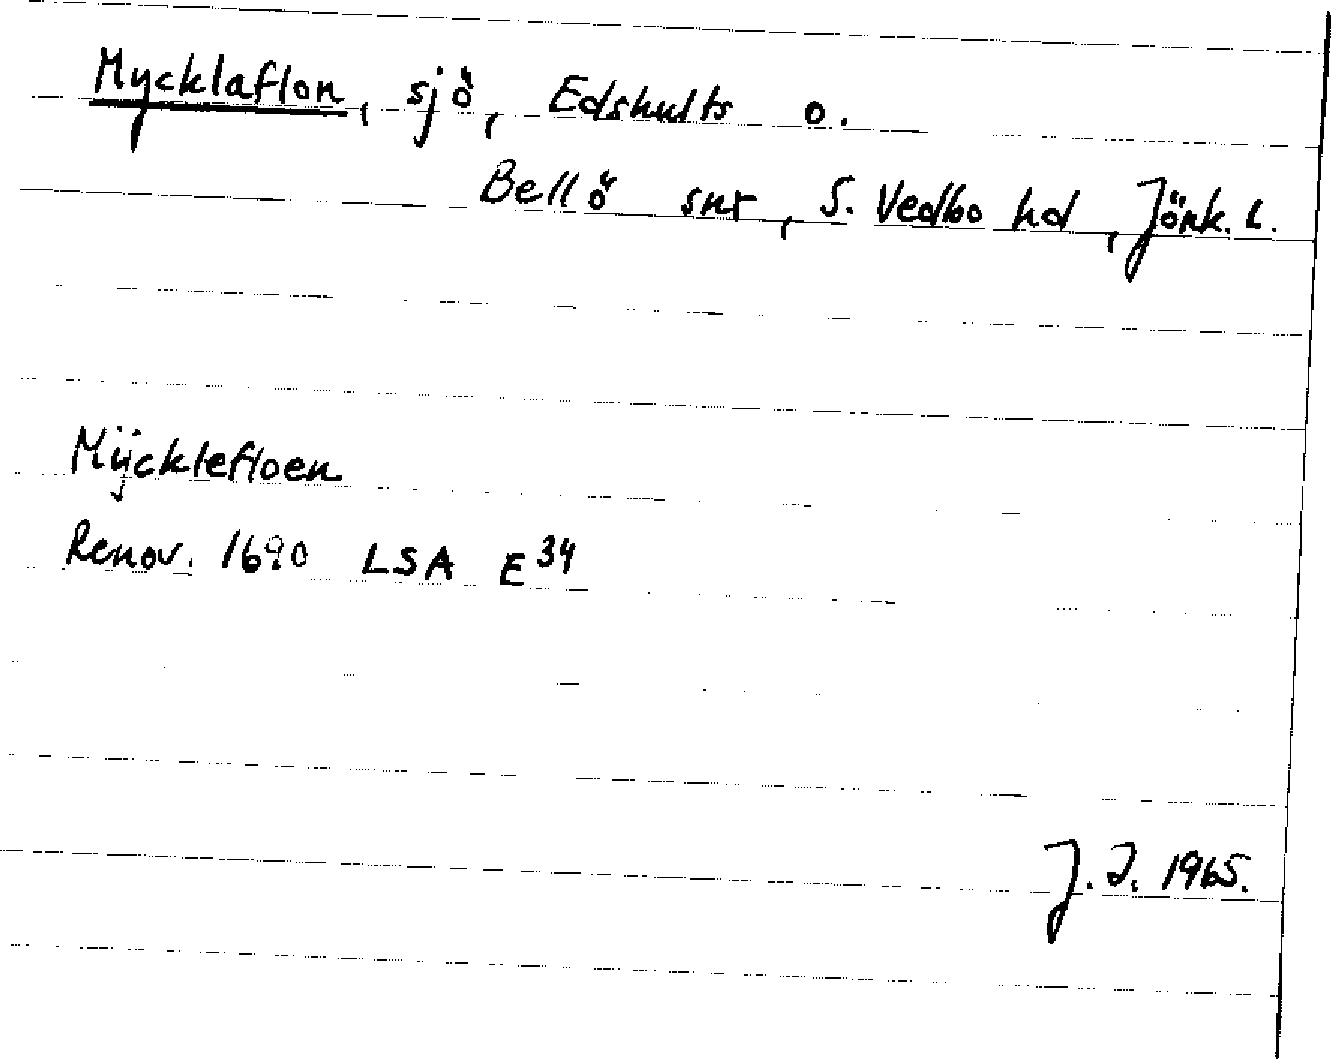 Mycklaflon, sjö, Edshults o.
Bellö snr, S. Vedbo hd, Jönk. l.
Mÿcklefloen
Renov. 1690 LSA E34
J. I. 1965.